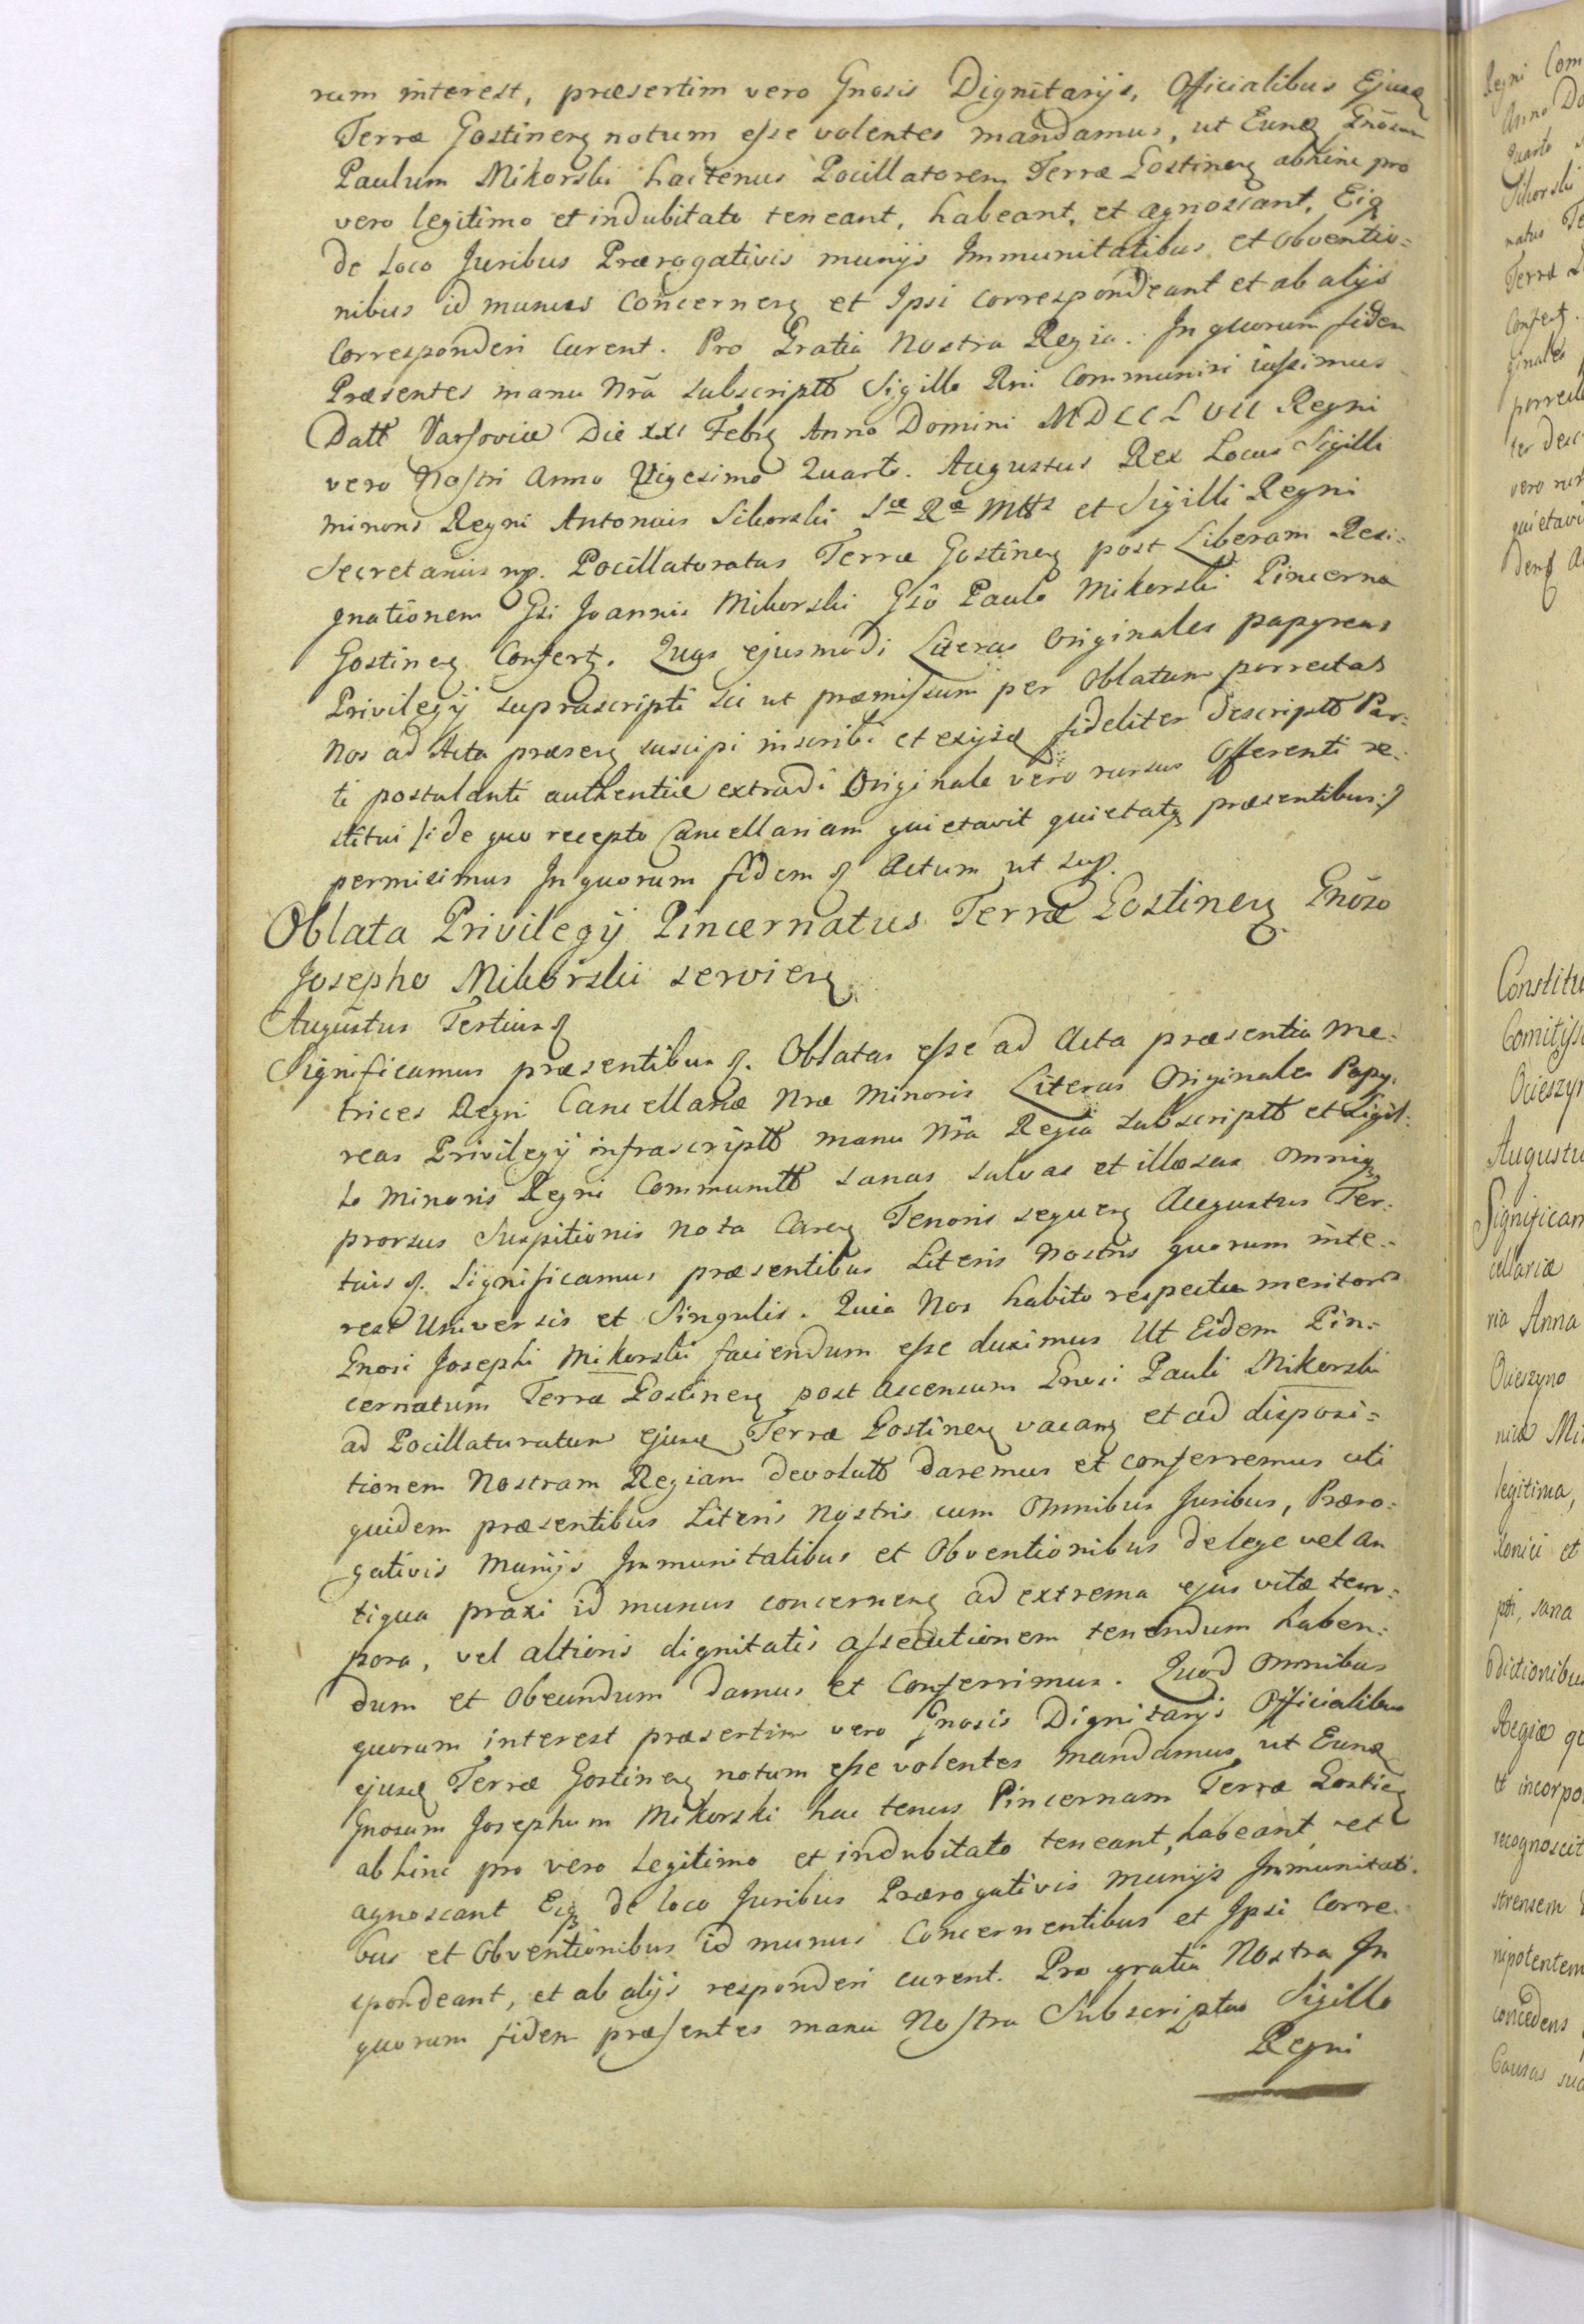 rum interest, præsertim vero Gnosis Dignitarijs, Officialibus Ejusq
Terræ Gostinenꝫ notum esse volentes mandamus, ut Eunq Gnōsum
Paulum Mikorski hactenus Pocillatorem Terræ Gostinenꝫ abhinc pro
vero legitimo et indubitato teneant, habeant, et agnoscant, Eiqꝫ
de Loco Juribus Prærogativis munijs Immunitatibus et obventio=
nibus id munus concernenꝫ et Ipsi correspondeant et ab alijs
corresponderi curent. Pro Gratia Nostra Regia. In quorum fidem
Præsentes manu Nrā subscriptt Sigillo Rni Communiri iussimus
Datt Varsoviæ Die XXI Febrꝫ Anno Domini MDCCLVII Regni
vero Nostri Anno Vigesimo Quarto. Augustus Rex Locus Sigilli
minoris Regni Antonius Sikorski Sæ Ræ Mttis et Sigilli Regni
Secretarius mp. Pocillatoratus Terræ Gostinenꝫ post Liberam Resi=
gnationem Gsi Joannis Mikorski Gsō Paulo Mikorski Pincerna
Gostinenꝫ Confertꝫ. Quas ejusmodi Literas Originales papyreas
Privilegij suprascripti sic ut præmissum per Oblatam porrectas
Nos ad Acta præsenꝫ suscipi inscribi et exijsq fideliter descriptt Par=
ti postulanti authenticæ extradi Originale vero rursus Offerenti re=
stitui /:de quo recepto Cancellariam quietavit quietatqꝫ præsentibus:/
permisimus In quorum fidem ꝭ Actum ut sup.
Oblata Privilegij Pincernatus Terræ Gostinenꝫ Gnōso
Josepho Mikorski servienꝫ
Augustus Tertius ꝭ
Significamus præsentibus ꝭ. Oblatas esse ad Acta præsentia Me=
trices Regni Cancellariæ Nræ Minoris Literas Originales Papy=
reas Privilegij infrascriptt manu Nrā Regia subscriptt et Sigil=
lo Minoris Regni Communitt sanas salvas et illæsas omniqꝫ
prorsus Suspitionis nota Carenꝫ Tenoris sequenꝫ Augustus Ter=
tius ꝭ. Significamus præsentibus Literis Nostris quorum inte=
rest Universis et Singulis. Quia Nos habito respectu meritorum
Gnosi Josephi Mikorski faciendum esse duximus Ut Eidem Pin=
cernatum Terræ Gostinenꝫ post ascensum Gnosi Pauli Mikorski
ad Pocillaturatum ejusq Terræ Gostinenꝫ vacanꝫ et ad disposi=
tionem Nostram Regiam devolutt daremus et conferremus uti
quidem præsentibus Literis Nostris cum Omnibus Juribus, Præro=
gativis Munijs Immunitatibus et Obventionibus de lege vel an
tiqua praxi id munus concernenꝫ ad extrema ejus vitæ tem=
pora, vel altioris dignitatis assecutionem tenendum haben=
dum et obeundum damus et Conferrimus. Quod Omnibus
quorum interest præsertim vero Gnosis Dignitarijs Officialibus
ejusq Terræ Gostinenꝫ notum esse volentes mandamus ut Eunq
Gnosum Josephum Mikorski hac tenus Pincernam Terræ Gostinꝫ
abhinc pro vero Legitimo et indubitato teneant, habeant et
agnoscant Eiqꝫ de loco Juribus Prærogativis munijs Immunitati=
bus et Obventionibus id munus Concernentibus et Ipsi corre=
spondeant, et ab alijs responderi curent. Pro gratia Nostra In
quorum fidem præsentes manu Nostra Subscriptas Sigillo
Regni
Constitu
Comitiss
Ocieszyn
Augustu
Significam
cellariæ
ria Anna
Ocieszyno
legitima,
pti, sana
Regiæ
et incorpo
recognoscit
strensem
nipotentem
concedens
Causas sua